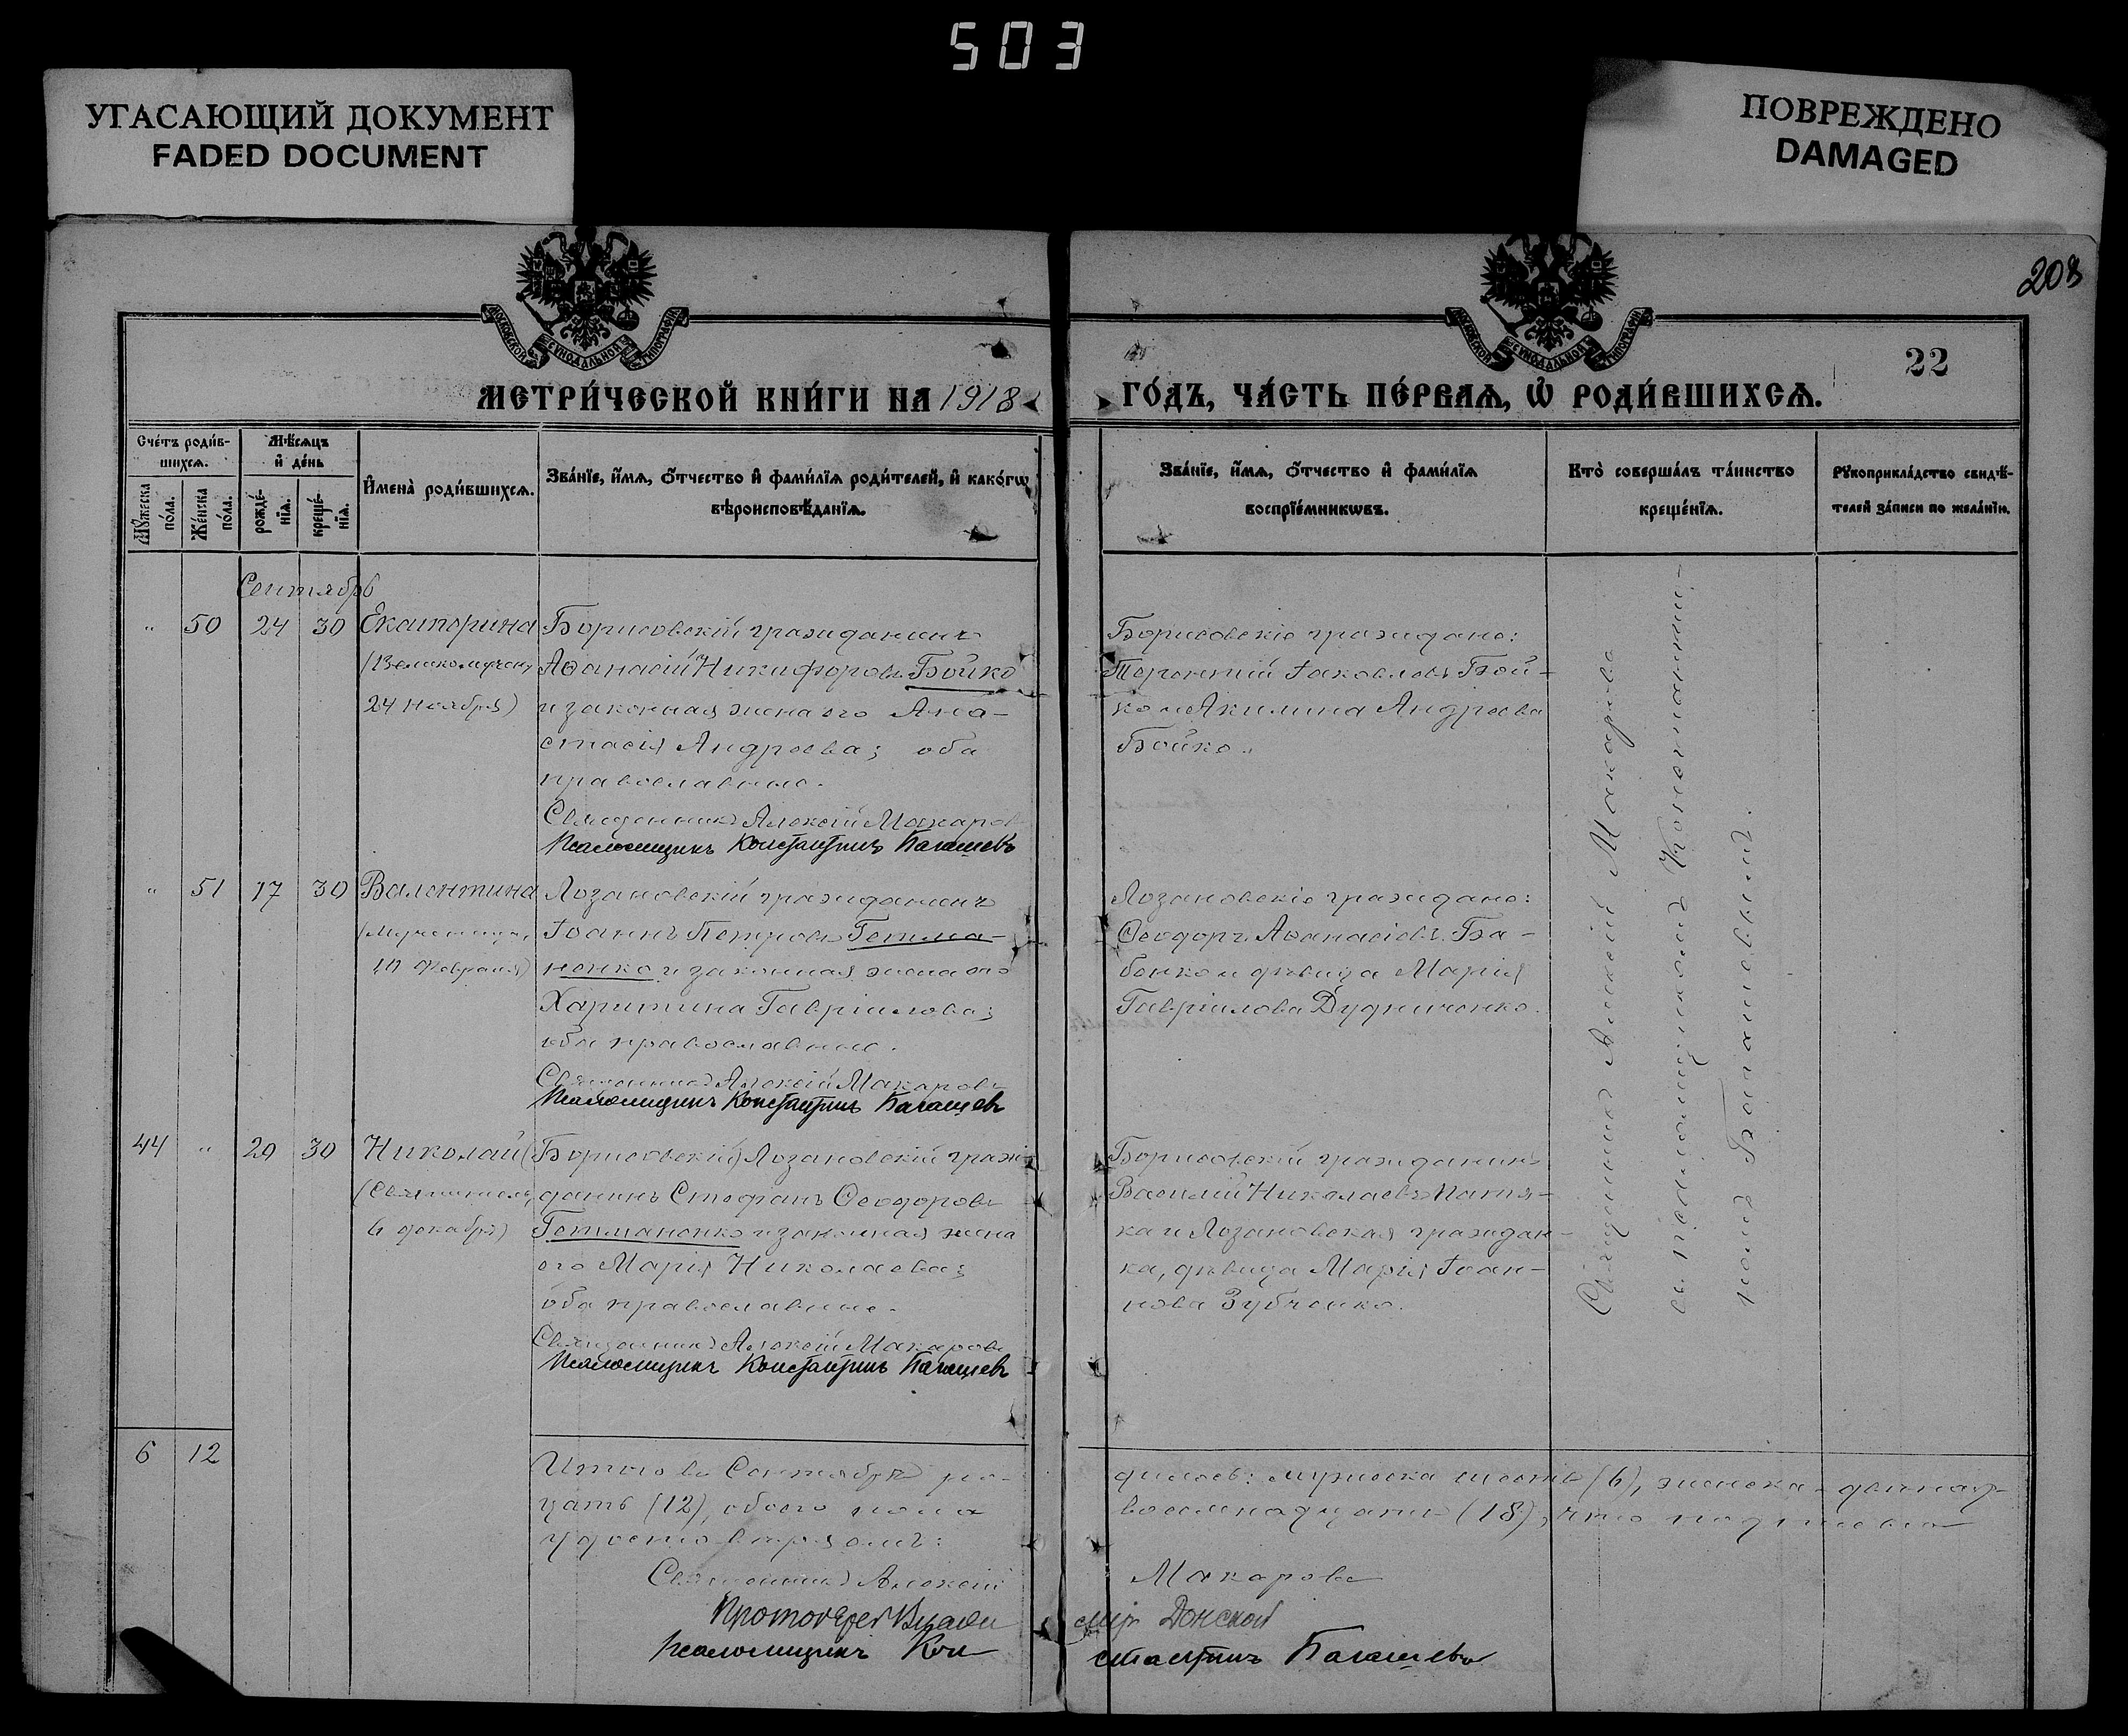 503
УГАСАЮЩИЙ ДОКУМЕНТ
FADED DOCUMENT
ПОВРЕЖДЕНО
DAMAGED
208
МОСКОВСКОЙ СѴНОДАЛЬНОЙ ТИПОГРАФІИ
МОСКОВСКОЙ СѴНОДАЛЬНОЙ ТИПОГРАФІИ
22
МЕТРИ́ЧЕСКОЙ КНИ́ГИ НА 1918
ГО́ДЪ, ЧА́СТЬ ПЕ́РВАѦ, Ѡ҆ РОДИ́ВШИХСѦ.
Сче́тъ роди́в-
шихсѧ.
Мꙋ́жеска по́ла.
Же́нска по́ла.
Мѣ́сѧцъ
и҆ де́нь
рожде́-
нїѧ.
креще́-
нїѧ.
И҆мена̀ роди́вшихсѧ.
Зва́нїе, и҆́мѧ, ѻ҆́тчество и҆ фами́лїѧ роди́телей, и҆ како́гѡ
вѣроисповѣ́данїѧ.
Зва́нїе, и҆́мѧ, ѻ҆́тчество и҆ фами́лїѧ
воспрїе́мникѡвъ.
Кто̀ соверша́лъ та́инство
креще́нїѧ.
Рꙋкоприкла́дство свидѣ́-
телей за́писи по жела́нїю.
Сентябрь
" 50 24 30 Екатерина
(Великомучен,
24 ноября)
Борисовскій гражданинъ
Аѳанасій Никифоровъ Бойко
и законная жена его Ана-
стасія Андреева; оба
православные.
Священникъ Алексій Макаровъ
Псаломщикъ Константинъ Багашевъ
Борисовскіе граждане:
Терентій Іаковлевъ Бой-
ко и Акилина Андреева
Бойко.
" 51 17 30 Валентина
(Мученица,
10 февраля)
Лозановскій гражданинъ
Іоаннъ Петровъ Гетма-
ненко и законная жена его
Харитина Гавріилова;
оба православные.
Священникъ Алексій Макаровъ
Псаломщикъ Константинъ Багашевъ
Лозановскіе граждане:
Ѳеодоръ Аѳанасіевъ Ба-
бенко и дѣвица Марія
Гавріилова Дудниченко.
44 " 29 30 Николай
(Святитель,
6 декабря)
(Борисовскій) Лозановскій граж-
данинъ Стефанъ Ѳеодоровъ
Гетманенко и законная жена
его Марія Николаева;
оба православные.
Священникъ Алексій Макаровъ
Псаломщикъ Константинъ Багашевъ
Борисовскій гражданинъ
Василій Николаевъ
ка и Лозановская граждан-
ка, дѣвица Марія Іоан-
нова Зубченко.
Священникъ Алексій Макаровъ
съ псаломщикомъ Константи-
номъ Багашевымъ.
6 12
Итого въ Сентябрѣ ро-
дилось: мужеска шесть (6), женска - двѣнад-
цать (12), обоего пола
восемнадцать (18), что подписью
удостовѣряемъ:
Священникъ Алексій Макаровъ
Протоіерей Влади
міръ Донской
Псаломщикъ Кон
стантинъ Багашевъ